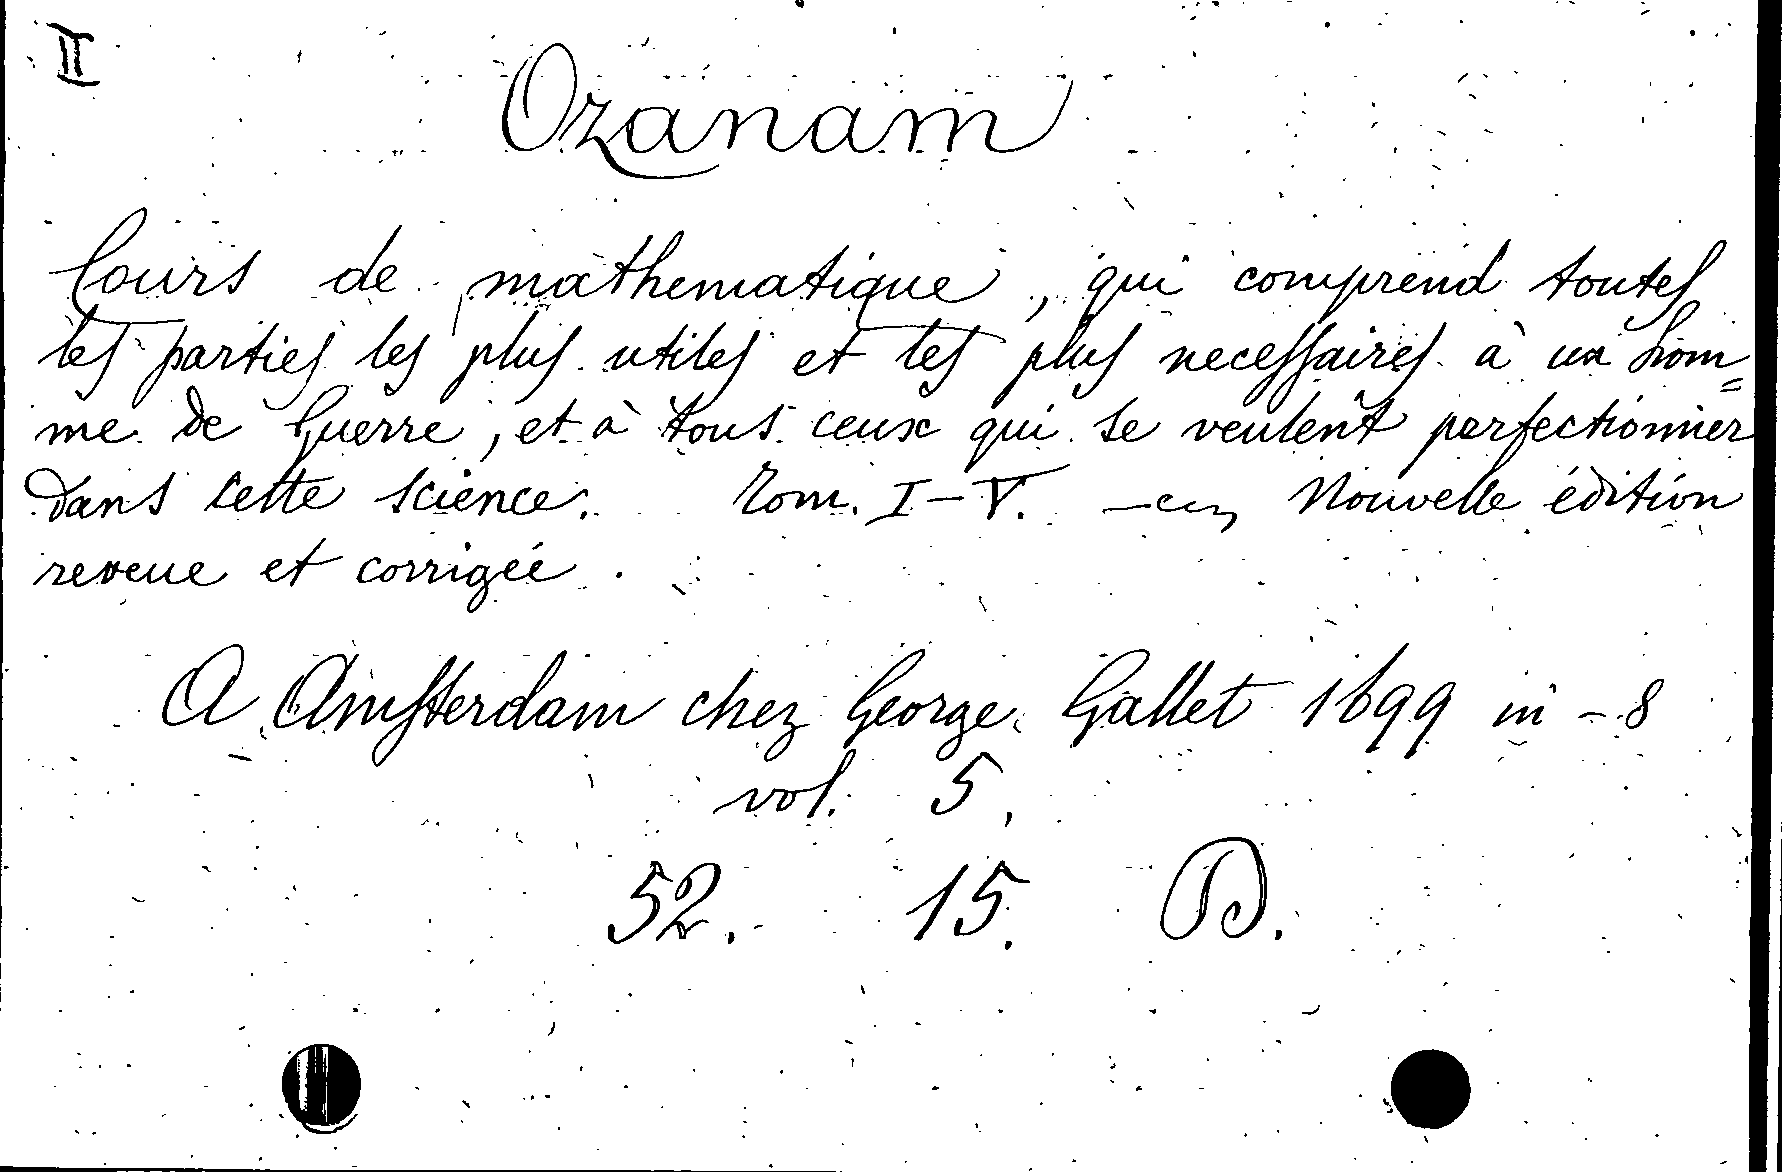 II
Ozanam
Cours de mathematique, qui comprend toutes
les parties les plus utiles et les plus necessaires à un hom=
me de Guerre, et à tous ceux qui se veulent perfectionner
dans cette science. Tom. I–V. Nouvelle édition
reveue et corrigée.
A Amsterdam chez George Gallet 1699 in – 8
vol. 5.
52. 15. B.